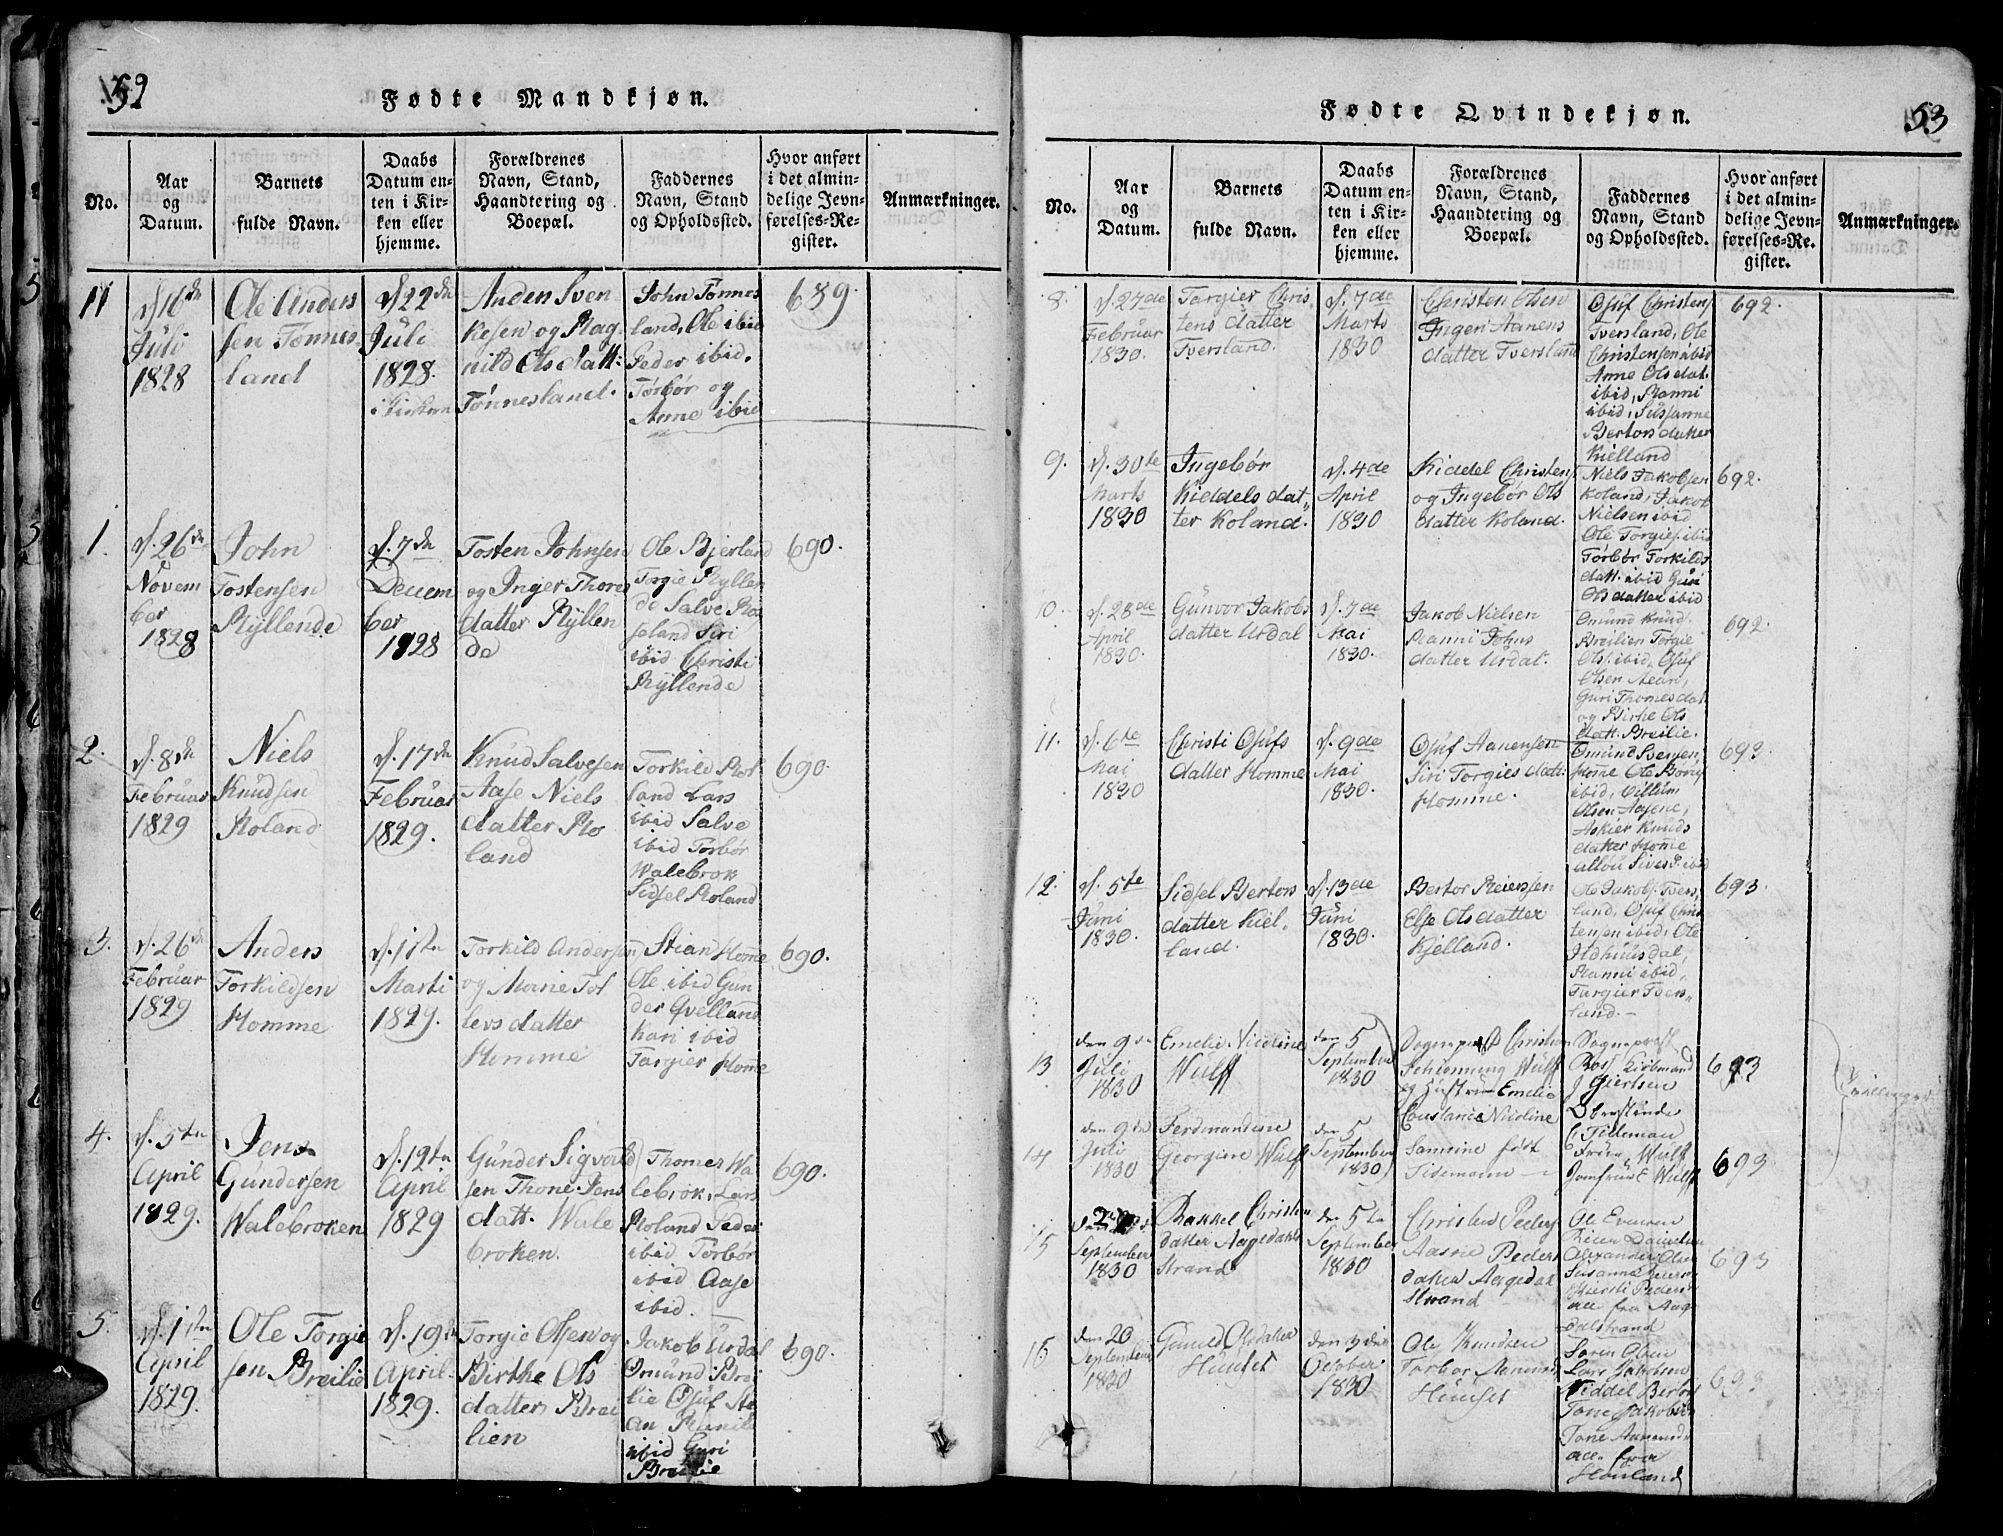 52
Fødte Mandkjøn.
No.
Aar
og
Datum.
Barnets
fulde Navn.
Daabs
Datum en-
ten i Kir-
ken eller
hjemme.
Forældrenes
Navn, Stand,
Haandtering og
Boepæl.
Faddernes
Navn, Stand
og Opholdssted.
Hvor anført
i det almin-
delige Jevn-
førelses-Re-
gister.
Anmærkninger.
11
d. 16de
Juli
1828
Ole Anders
sen Tønnes
land
d. 22de
Juli
1828.
i Kirken
Anden Sven
kesen og Rag
nild Olsdatt:
Tønnesland.
John Tønnes
land, Ole ibid
Peder ibid.
Tørbør og
Anne ibid
689.
1.
d. 26de
Novem
ber
1828
John
Tostensen
Ryllende
d. 7de
Decem
ber
1828
Tosten Johnsen
og Inger Thores
datter Ryllen
de
Ole Bjerland
Torgie Ryllen
de Salve Ro
seland Siri
ibid Christi
Ryllende
690.
2.
d. 8de
Februar
1829
Niels
Knudsen
Roland
d. 17de
Februar
1829.
Knud Salvesen
Aase Niels
datter Ro
land
Torkild Ro
land Lars
ibid Salve
ibid Tørbør
Walebrok
Sidsel Roland
690.
3.
d. 26de
Februar
1829
Anders
Torkildsen
Homme
d. 11te
Marti
1829.
Torkild Andersen
og Marie Tol
levs datter
Homme
Stian Homme
Ole ibid Gun
der Qvelland
Kari ibid
Targier Homme
690.
4.
d. 5te
April
1829.
Jens
Gundersen
Walebroken
d. 12te
April
1829
Gunder Sigvald
sen Thone Jens
datt. Wale
broken.
Thomes Wa
lebrok, Lars
Roland Peder
ibid Tørbør
ibid Aase
ibid.
690.
5.
d. 11te
April
1829.
Ole Torgie
sen Breilie
d. 19de
April
1829.
Torgie Olsen og
Birthe Ols
datter Brei
lien
Jakob Urdal
Omund Brei
lie Osuf
ibid Guri
Breilie
690.
53
Fødte Qvindekjøn.
No.
Aar
og
Datum.
Barnets
fulde Navn.
Daabs
Datum en-
ten i Kir-
ken eller
hjemme.
Forældrenes
Navn, Stand,
Haandtering og
Boepæl.
Faddernes
Navn, Stand
og Opholdssted.
Hvor anført
i det almin-
delige Jevn-
førelses-Re-
gister.
Anmærkninger.
8.
d. 27de
Februar
1830.
Targier Chris
tens datter
Tversland.
d. 7de
Marts
1830
Christen Olsen
Ingeri Aanens
datter Tversland
Osuf Christens
Tversland, Ole
Christensen ibid
Anne Olsdat.
ibid, Ranni
ibid, Sussanne
Bertors datter
Kielland
692.
9.
d. 30te
Marts
1830
Ingebør
Kiddels dat
ter Koland.
d. 4de
April
1830
Kiddel Christens
og Ingebør Ols
datter Koland.
Niels Jakobsen
Koland, Jakob
Nielsen ibid
Ole Torgies. ibid
Tørbør Torkilds
datt. ibid Guri
Olsdatter ibid
692.
10.
d. 28de
April
1830.
Gunvor Jakobs
datter Urdal
d. 7de
Mai
1830.
Jakob Nielsen
Ranni Johns
datter Urdal.
Omund Knud.
Breilien Torgie
Ols. ibid, Osuf
Olsen
Guri Thomesdat
og Birthe Ols
datt. Breilie.
692.
11.
d. 6te
Mai
1830
Christi Osufs
datter Homme
d. 9de
Mai
1830.
Osuf Aanensen
Siri Torgies datt:
Homme.
Omund
Homme Ole
ibid, Villum
Olsen
Askier Knuds
datter Home
ibid
692.
12.
d. 5te
Juni
1830.
Sidsel Bertors
datter Kiel-
land.
d. 13de
Juni
1830.
Bertor Reiersen
Else Olsdatter
Kjelland.
Ole Jakobs. Tvers
land, Osuf Chris
tensen ibid, Ole
Ildhuusdal,
Ranni ibid,
Targier Tvers-
land.
693.
13
den 9de
Juli
1830
Emelie Nicoline
Wulff
den 5
September
1830
Sognepræst Christian
Wulff
og Hustru Emelie
Constance Nicoline
Sognepræst
Kiøbmand
J Giertsen
693
14
den 9de
Juli
1830
Ferdinandine
Georgine Wulff
den 5
September
1830
Samsine født
Tidemann
C Tideman
Frøen Wulff
Jomfrue Wulff
693
15
September
1830
Rakkel Christen
datter Aagedals
Strand
den 5te
September
1830
Christen Peders
Aasne Peders
datter Aagedal
Strand
Ole Evensen
Alexander Olsen
Susanne Reiers
Peders
alle fra Aag
dalstrand
693
16
den 20
September
1830
Gunild Olsdatter
Huuset
den 3die
October
1830
Ole Knudsen
Torbor
Huuset
Søren Olsen
Lars Jakobsen
Kiddel Bertors
Tone Jakobs
Tone
alle fra
693